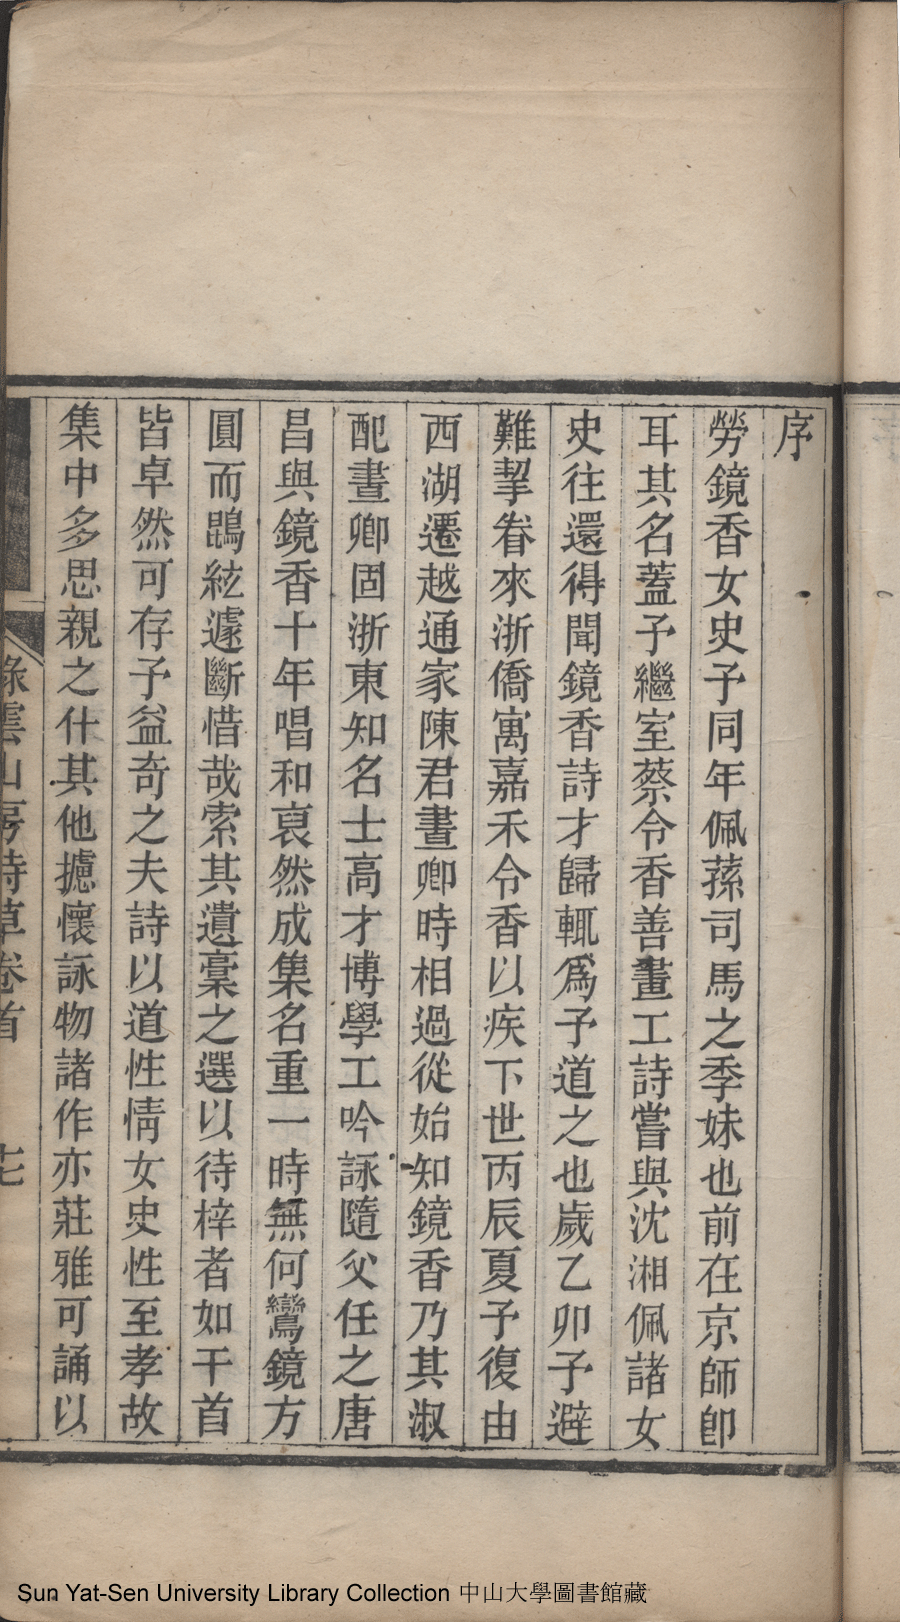 序
勞鏡香女史予同年佩蓀司馬之季妹也前在京師卽
耳其名蓋予繼室蔡令香善畫工詩嘗與沈湘佩諸女
史往還得聞鏡香詩才歸輒爲予道之也歲乙卯予避
難挈眷來浙僑寓嘉禾令香以疾下世丙辰夏予復由
西湖遷越通家陳君晝卿時相過從始知鏡香乃其淑
配晝卿固浙東知名士高才博學工吟詠隨父任之唐
昌與鏡香十年唱和裒然成集名重一時無何鸞鏡方
圓而鵾絃遽斷惜哉索其遺稾之選以待梓者如干首
皆卓然可存予益奇之夫詩以道性情女史性至孝故
集中多思親之什其他攄懷詠物諸作亦莊雅可誦以
雲山房詩草卷首
Sun Yat-Sen University Library Collection 中山大學圖書館藏